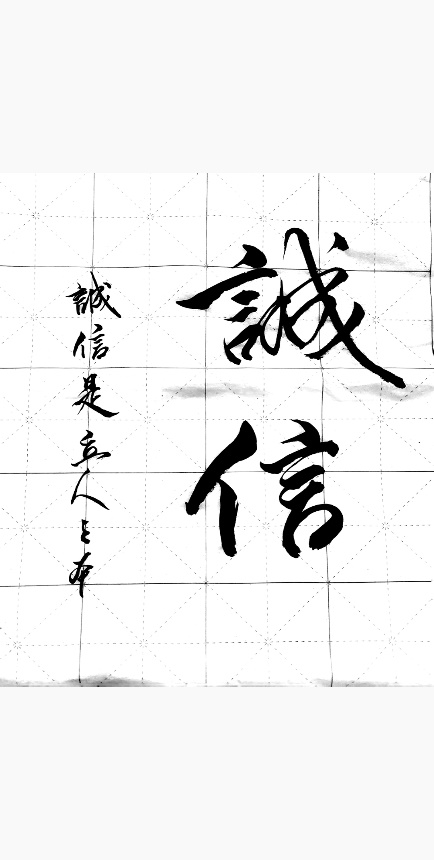 誠信
誠信是立人之本